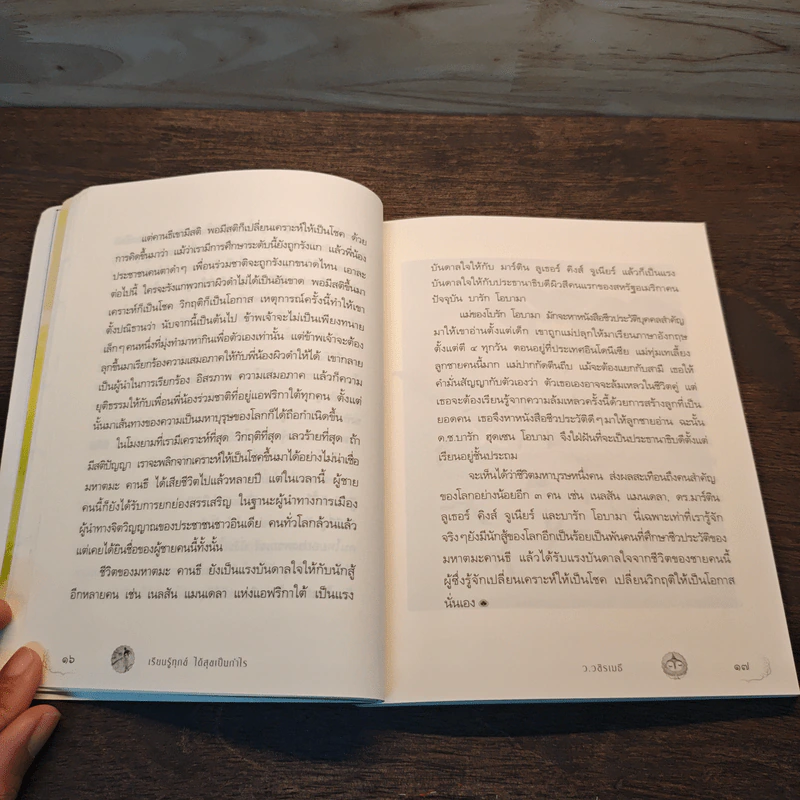 แต่คานธีเขามีสติ พอมีสติก็เปลี่ยนเคราะห์ให้เป็นโชค ด้วย
การคิดขึ้นมาว่า แม้ว่าเรามีการศึกษาระดับนี้ยังถูกรังแก แล้วพี่น้อง
ประชาชนคนตาดำๆ เพื่อนร่วมชาติจะถูกรังแกขนาดไหน เอาละ
ต่อไปนี้ ใครจะรังแกพวกเราผิวดำไม่ได้เป็นอันขาด พอมีสติขึ้นมา
เคราะห์ก็เป็นโชค วิกฤติก็เป็นโอกาส เหตุการณ์ครั้งนี้ทำให้เขา
ตั้งปณิธานว่า นับจากนี้เป็นต้นไป ข้าพเจ้าจะไม่เป็นเพียงทนาย
เล็กๆ คนหนึ่งที่มุ่งทำมาหากินเพื่อตัวเองเท่านั้น แต่ข้าพเจ้าจะต้อง
ลุกขึ้นมาเรียกร้องความเสมอภาคให้กับพี่น้องผิวดำให้ได้ เขากลาย
เป็นผู้นำในการเรียกร้อง อิสรภาพ ความเสมอภาค แล้วก็ความ
ยุติธรรมให้กับเพื่อนพี่น้องร่วมชาติที่อยู่แอฟริกาใต้ทุกคน ตั้งแต่
นั้นมาเส้นทางของความเป็นมหาบุรุษของโลกก็ได้ถือกำเนิดขึ้น
ในโมงยามที่เรามีเคราะห์ที่สุด วิกฤติที่สุด เลวร้ายที่สุด ถ้า
มีสติปัญญา เราจะพลิกจากเคราะห์ให้เป็นโชคขึ้นมาได้อย่างไม่น่าเชื่อ
มหาตมะ คานธี ได้เสียชีวิตไปแล้วหลายปี แต่ในเวลานี้ ผู้ชาย
คนนี้ก็ยังได้รับการยกย่องสรรเสริญ ในฐานะผู้นำทางการเมือง
ผู้นำทางจิตวิญญาณของประชาชนชาวอินเดีย คนทั่วโลกล้วนแล้ว
แต่เคยได้ยินชื่อของผู้ชายคนนี้ทั้งนั้น
ชีวิตของมหาตมะ คานธี ยังเป็นแรงบันดาลใจให้กับนักสู้
อีกหลายคน เช่น เนลสัน แมนเดลา แห่งแอฟริกาใต้ เป็นแรง
๑๖ เรียนรู้ทุกข์ ได้สุขเป็นกำไร
บันดาลใจให้กับ มาร์ติน ลูเธอร์ คิงส์ จูเนียร์ แล้วก็เป็นแรง
บันดาลใจให้กับประธานาธิบดีผิวสีคนแรกของสหรัฐอเมริกาคน
ปัจจุบัน บารัก โอบามา
แม่ของโบรัก โอบามา มักจะหาหนังสือชีวประวัติบุคคลสำคัญ
มาให้เขาอ่านตั้งแต่เด็ก เขาถูกแม่ปลุกให้มาเรียนภาษาอังกฤษ
ตั้งแต่ตี ๔ ทุกวัน ตอนอยู่ที่ประเทศอินโดนีเซีย แม่ทุ่มเทเลี้ยง
ลูกชายคนนี้มาก แม่ปากกัดตีนถีบ แม้จะต้องแยกกับสามี เธอให้
คำมั่นสัญญากับตัวเองว่า ตัวเธอเองอาจจะล้มเหลวในชีวิตคู่ แต่
เธอจะต้องเรียนรู้จากความล้มเหลวครั้งนี้ด้วยการสร้างลูกที่เป็น
ยอดคน เธอจึงหาหนังสือชีวประวัติดีๆ มาให้ลูกชายอ่าน ฉะนั้น
ด.ช.บารัก ฮุตเซน โอบามา จึงใฝ่ฝันที่จะเป็นประธานาธิบดีตั้งแต่
เรียนอยู่ชั้นประถม
จะเห็นได้ว่าชีวิตมหาบุรุษหนึ่งคน ส่งผลสะเทือนถึงคนสำคัญ
ของโลกอย่างน้อยอีก ๓ คน เช่น เนลสัน แมนเดลา, ดร.มาร์ติน
ลูเธอร์ คิงส์ จูเนียร์ และบารัก โอบามา นี่เฉพาะเท่าที่เรารู้จัก
จริงๆ ยังมีนักสู้ของโลกอีกเป็นร้อยเป็นพันคนที่ศึกษาชีวประวัติของ
มหาตมะคานธี แล้วได้รับแรงบันดาลใจจากชีวิตของชายคนนี้
ผู้ซึ่งรู้จักเปลี่ยนเคราะห์ให้เป็นโชค เปลี่ยนวิกฤติให้เป็นโอกาส
นั่นเอง
ว.วชิรเมธี ๑๗